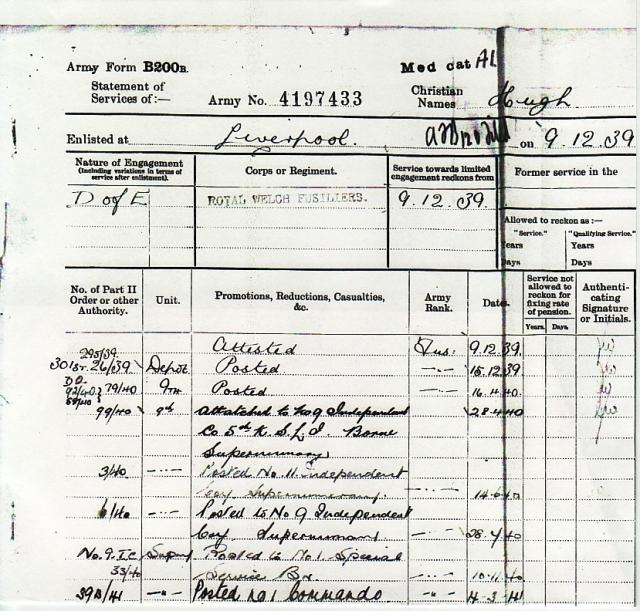 Army Form B200B.
Med cat A1
Statement of
Services of:—
Army No. 4197433
Christian
Names Hugh.
Enlisted at Liverpool. on 9.12.39
Nature of Engagement
(including variations in terms of
service after enlistment).
Corps or Regiment.
Service towards limited
engagement reckons from
Former service in the
D of E
ROYAL WELCH FUSILIERS.
9.12.39
Allowed to reckon as:—
"Service." "Qualifying Service."
Years Years
Days Days
No. of Part II
Order or other
Authority.
Unit.
Promotions, Reductions, Casualties,
&c.
Army
Rank.
Dates.
Service not
allowed to
reckon for
fixing rate
of pension.
Years. Days
Authenti-
cating
Signature
or Initials.
295/39 Attested Fus: 9.12.39
26/39 Depot Posted —·— 15.12.39
79/40 9TH Posted —·— 16.4.40
99/40 9th Attatched to No 9 Independent 28.4.40
Co 5th K.S.L.I. Borne
Supernumerary
3/40 —·— Posted No. 11 Independent
Coy. Supernumerary. —·— 14.6.40
6/40 —·— Posted to No 9 Independent
Coy Supernumary —·— 28.7.40
No. 9. I.C Posted to No 1. Special
33/40 Service Bn —·— 10.11.40
398/41 —"— Posted No 1 Commando. —"— 4.3.41